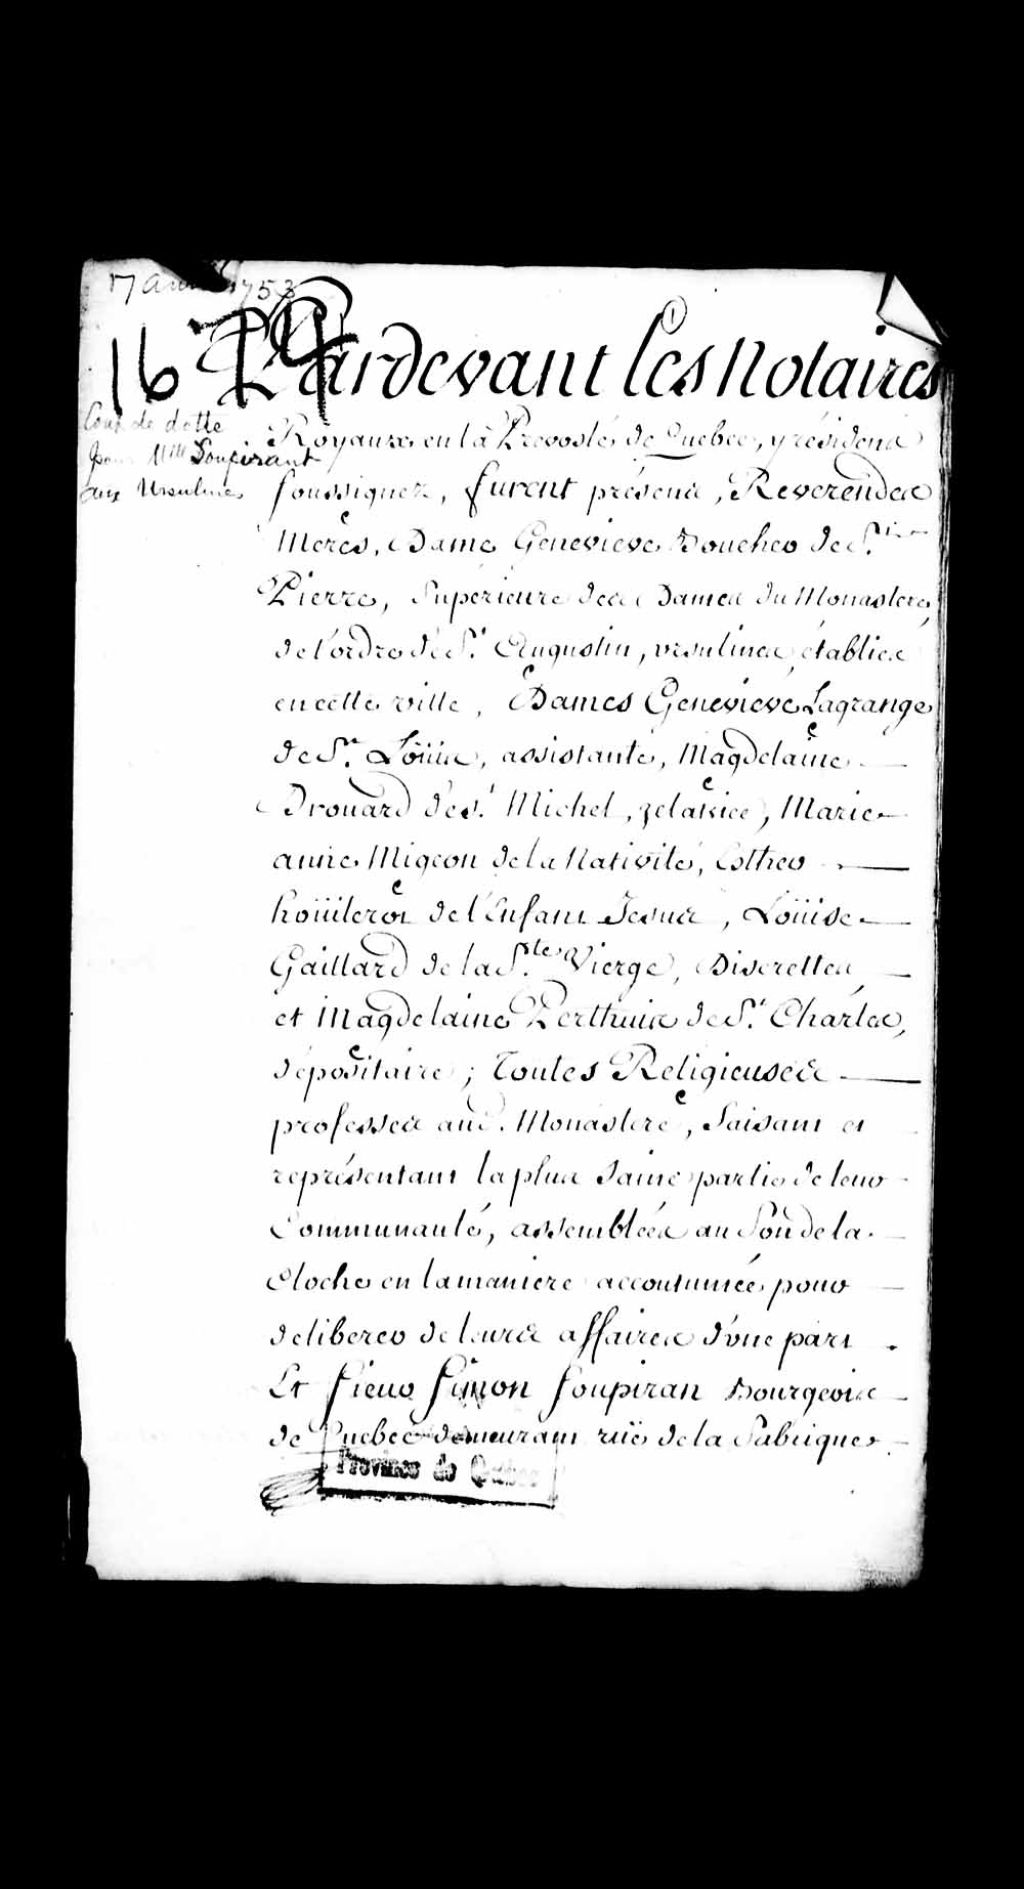 17 avril 1753
16
Pardevant Les Notaires
Cont. de dotte
pour Mlle Soupirant
aux Ursulines
Royaux en la Prevosté de Quebec, y résidens
soussignez, furent présens, Reverendes
Meres, Dame Genevieve Boucher de St.
Pierre, Supérieure des Dames du Monastere
de l'ordre de St. Augustin, ursulines, établies
en cette ville, Dames Genevieve Lagrange
de St. Loüis, assistante, Magdelaine
Droüard de St. Michel, zelatrice, Marie
anne Migeon de la Nativité, Esther
hoüileroi de l'Enfant Jesus, Loüise
Gaillard de la Ste. Vierge, Discrettes,
et Magdelaine Perthuis de St. Charles,
dépositaire; Toutes Religieuses
professes aud. Monastere, faisant et
représentant la plus Saine partie de leur
Communauté, assemblées au Son de la
Cloche en la maniere accoutumée pour
deliberer de leurs affaires d'une part
Et Sieur Simon Soupiran Bourgeois
de Quebec demeurant rüe de la Fabrique
Province de Québec